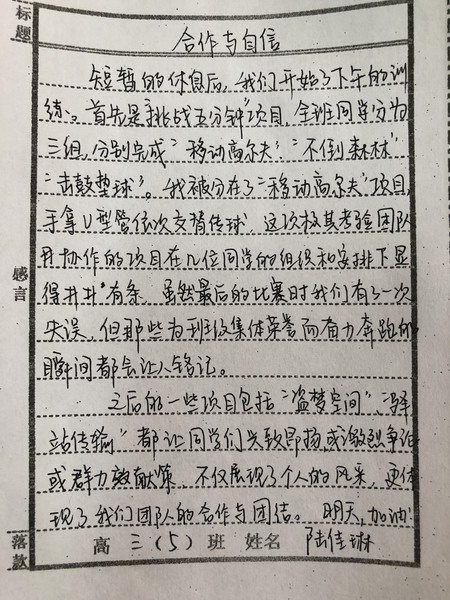 标题
合作与自信
短暂的休息后,我们开始了下午的训
练。首先是“挑战五分钟”项目,全班同学分为
三组,分别完成“移动高尔夫”、“不倒森林”
“击鼓垫球”。我被分在了“移动高尔夫”项目,
手拿U型管依次交替传球,这次极其考验团队
协作的项目在几位同学的组织和安排下显
得井井有条,虽然最后的比赛时我们有了一次
失误,但那些为班级集体荣誉而奋力奔跑的
瞬间都会让人铭记。
之后的一些项目包括“盗梦空间”,“驿
站传输”都让同学们兴致昂扬,或激烈争论
或群力献策,不仅展现了个人的风采,更体
现了我们团队的合作与团结。明天,加油!
感言
落款 高三(5)班 姓名 陆佳琳